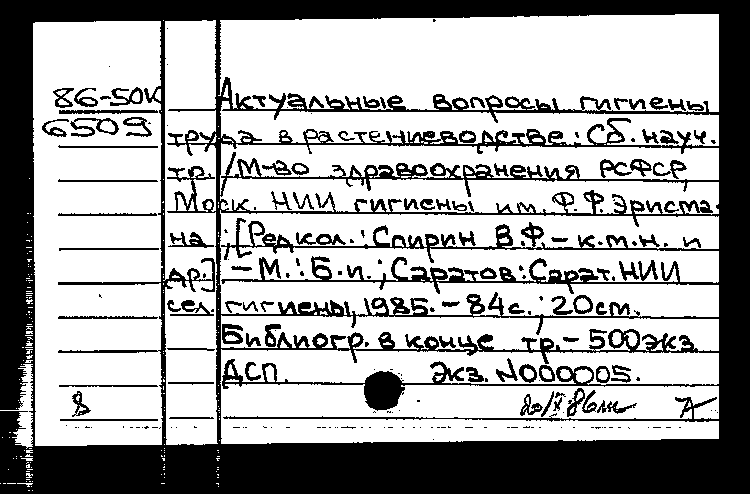 86-50К Актуальные вопросы гигиены
6509 труда в растениеводстве: Сб. науч.
тр. / М-во здравоохранения РСФСР,
Моск. НИИ гигиены им. Ф. Ф. Эрисма-
на ; [Редкол.: Спирин В.Ф. – к.м.н. и
др.]. – М. : Б.и. ; Саратов : Сарат. НИИ
сел. гигиены, 1985. – 84 с. ; 20 см.
Библиогр. в конце тр. – 500 экз.
ДСП. Экз. N000005.
8 А